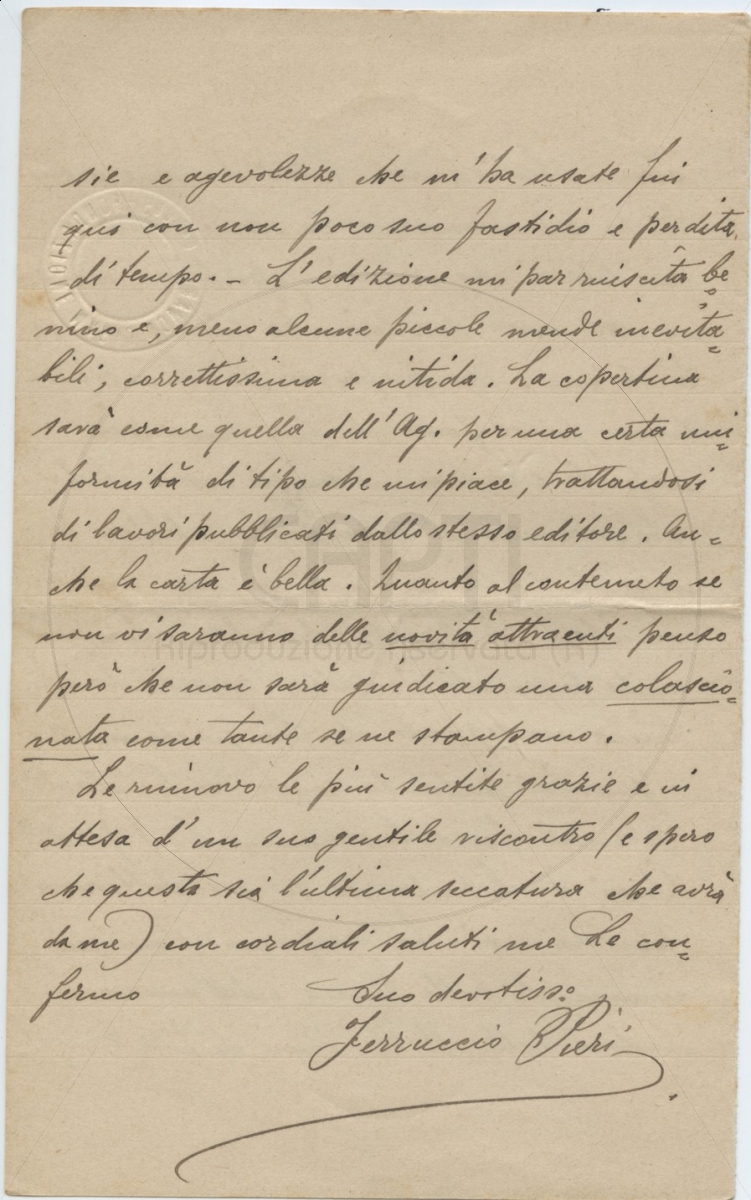 sie e agevolezze che m'ha usate fin
qui con non poco suo fastidio e perdita
di tempo. - L'edizione mi par riuscita be
nino e, meno alcune piccole mende inevita=
bili, correttissima e nitida. La copertina
sarà come quella dell'Ag. per una certa uni=
formità di tipo che mi piace, trattandosi
di lavori pubblicati dallo stesso editore. An=
che la carta è bella. Quanto al contenuto se
non vi saranno delle novità attraenti penso
però che non sarà giudicato una colascio=
nata come tante se ne stampano.
Le rinnovo le più sentite grazie e in
attesa d'un suo gentile riscontro (e spero
che questa sia l'ultima seccatura che avrà
da me) con cordiali saluti me Le con=
fermo
Suo devotisso
Ferruccio Pieri
CAPTI
Riproduzione riservata (R)